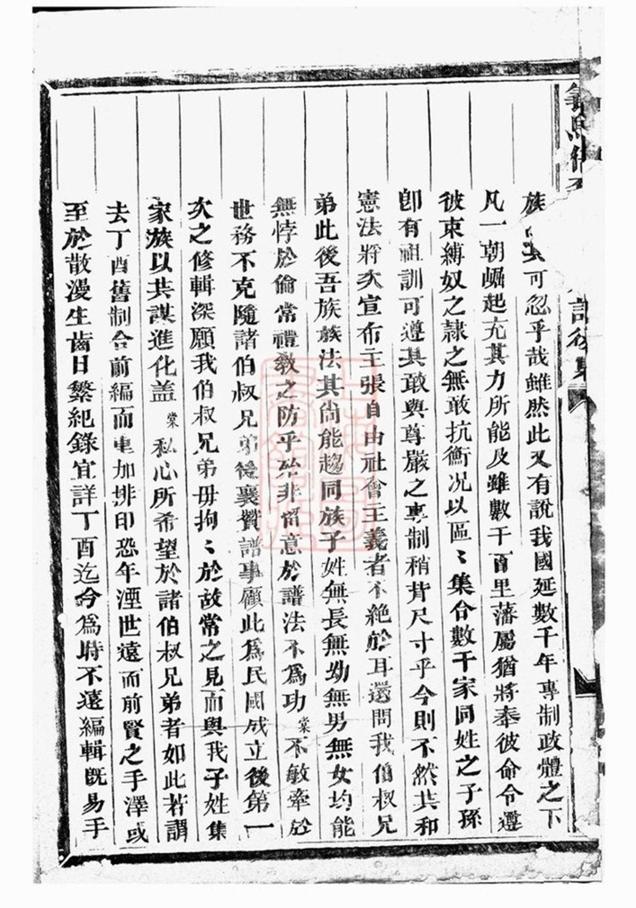 族 可忽乎哉雖然此又有說我國延數千年專制政體之下
凡一朝崛起充其力所能及雖數千百里藩屬猶將奉彼命令遵
彼束縛奴之隸之無敢抗衡况以區〻集合數千家同姓之子孫
卽有祖訓可遵其敢與尊嚴之專制稍背尺寸乎今則不然共和
憲法將次宣布主張自由社會主義者不絶於耳還問我伯叔兄
弟此後吾族族法其尚能趨同族子姓無長無幼無男無女均能
無悖於倫常禮敎之防乎殆非留意於譜法不爲功棠不敏牽於
世務不克隨諸伯叔兄弟後襄贊譜事顧此爲民國成立後第一
次之修輯深願我伯叔兄弟毋拘〻於故常之見而與我子姓集
家族以共謀進化盖棠私心所希望於諸伯叔兄弟者如此若謂
去丁酉舊制合前編而重加排印恐年湮世遠而前賢之手澤或
至於散漫生齒日繁紀錄宜詳丁酉迄今爲時不遠編輯旣易手